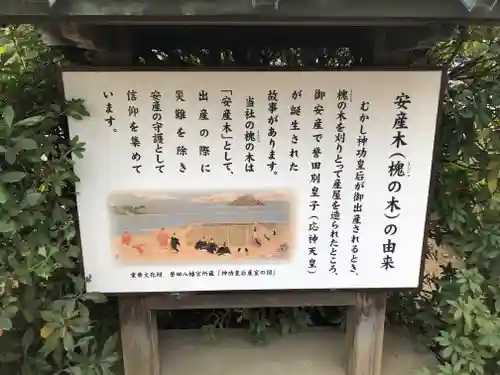 安産木（槐の木）の由来
むかし神功皇后が御出産されるとき、
槐の木を切りとって産屋を造られたところ、
御安産で誉田別皇子（応神天皇）
が誕生された
故事があります。
当社の槐の木は
「安産木」として、
出産の際に
災難を除き
安産の守護として
信仰を集めて
います。
重要文化財　誉田八幡宮所蔵「神功皇后産室の図」